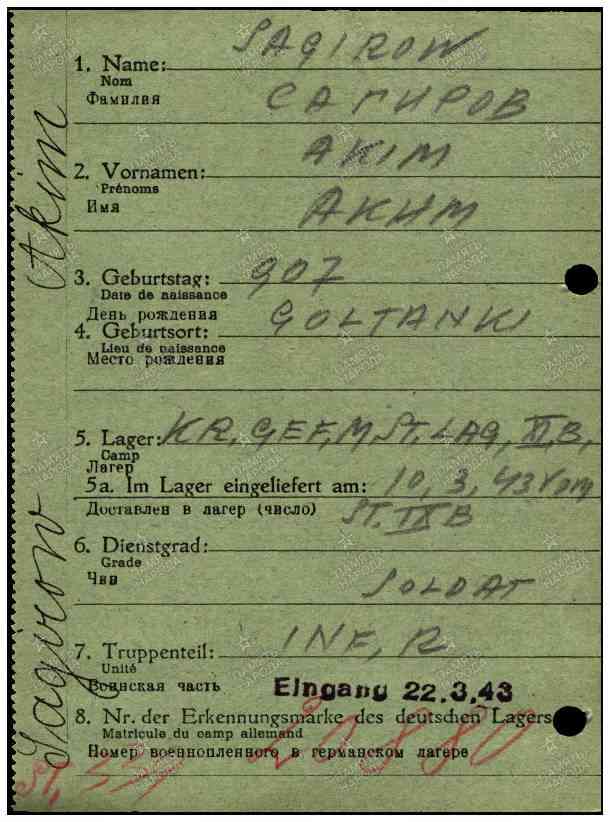 1. Name: SAGIROW
Nom
Фамилия САГИРОВ
AKIM
2. Vornamen:
Prénoms
Имя АКИМ
3. Geburtstag: 907
Date de naissance
День рождения
4. Geburtsort: GOLTANKI
Lieu de naissance
Место рождения
5. Lager: KR. GEF. M ST. LAG, XI, B,
Camp
Лагерь
5a. Im Lager eingeliefert am: 10, 3, 43 vom
Доставлен в лагерь (число) ST. IX B
6. Dienstgrad:
Grade
Чин SOLDAT
7. Truppenteil: INF, R
Unité
Воинская часть Eingang 22.3.43
8. Nr. der Erkennungsmarke des deutschen Lagers
Matricule du camp allemand
Номер военнопленного в германском лагере
Sagirow Akim